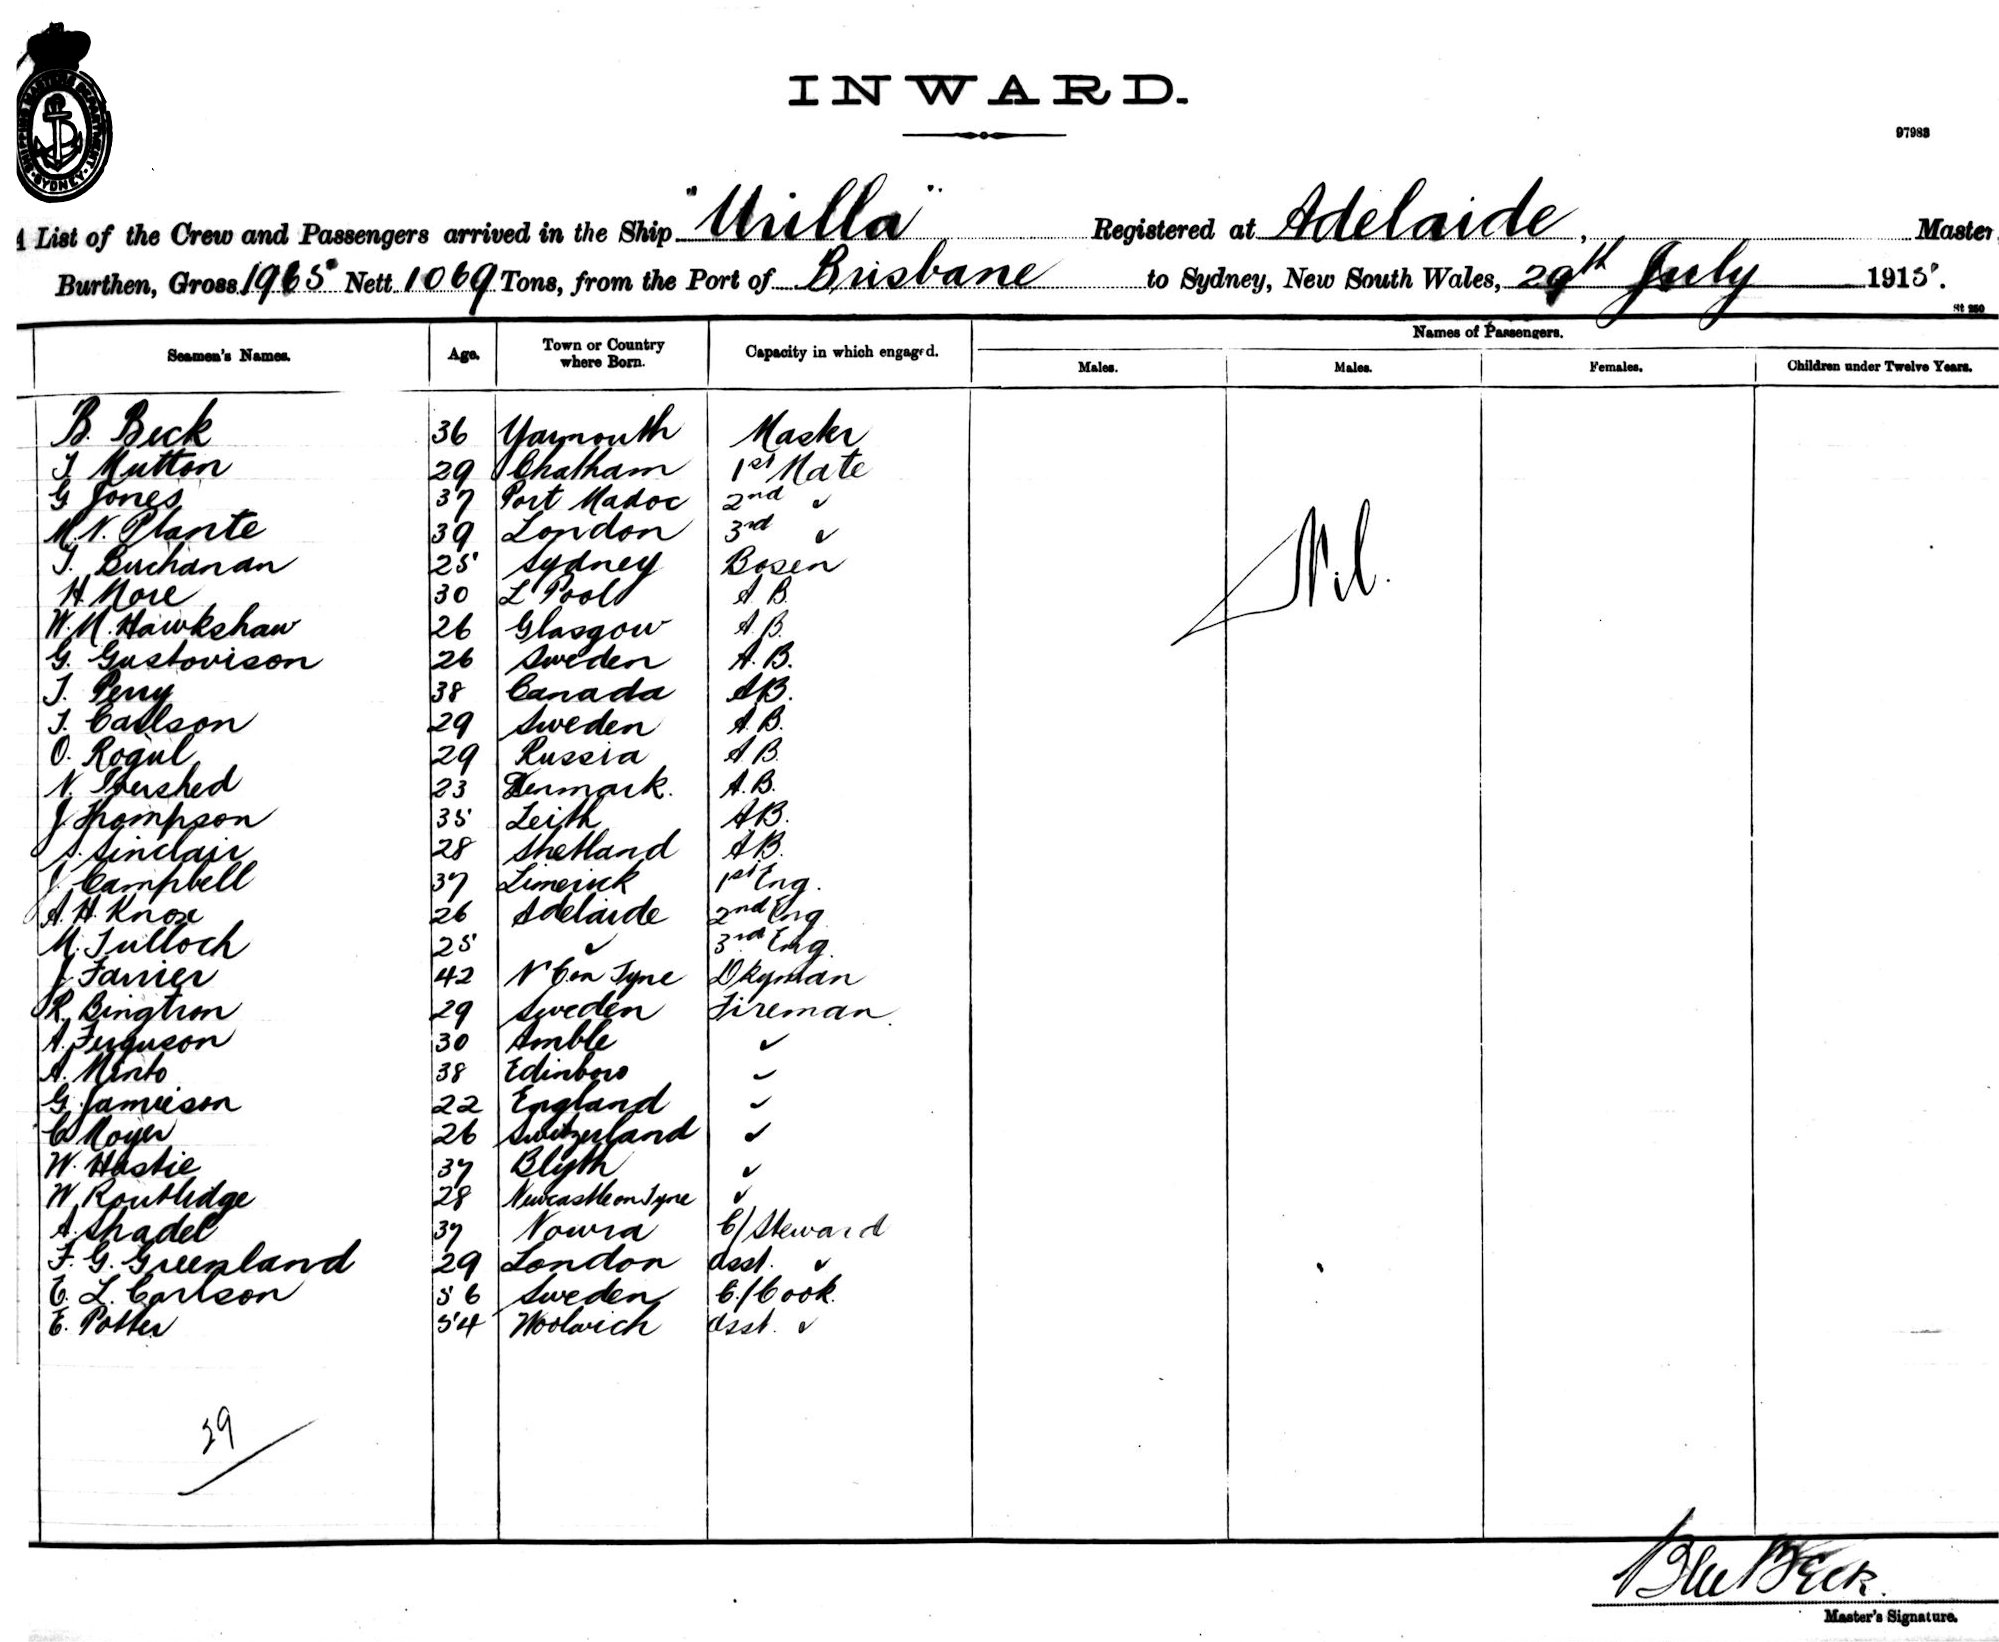 SHIPPING MASTERS DEPARTMENT SYDNEY
INWARD.
97983
A List of the Crew and Passengers arrived in the Ship "Urilla" Registered at Adelaide, Master,
Burthen, Gross 1965 Nett 1069 Tons, from the Port of Brisbane to Sydney, New South Wales, 29th July 1915.
St 250
Names of Passengers.
Seamen's Names. Age. Town or Country where Born. Capacity in which engaged. Males. Males. Females. Children under Twelve Years.
B. Beck 36 Yarmouth Master
T Mutton 29 Chatham 1st Mate
G Jones 37 Port Madoc 2nd "
M. N. Plante 39 London 3rd "
T. Buchanan 25 Sydney Bosen
H. More 30 L Pool A B.
W. M. Hawkshaw 26 Glasgow A. B.
G. Gustovison 26 Sweden A. B.
T. Perry 38 Canada AB.
T. Carlson 29 Sweden A. B.
O. Rogul 29 Russia A B.
N. 23 Denmark. A. B.
J Thompson 35 Leith AB.
Sinclair 28 Shetland AB.
J. Campbell 37 Limerick 1st Eng.
A. H. Knox 26 Adelaide 2nd Eng
M. Tulloch 25 " 3rd Eng.
J Farrier 42 N' C on Tyne Dkyman
R. Bingtron 29 Sweden Fireman.
A. Ferguson 30 Amble "
A. Minto 38 Edinboro "
G. Jamieson 22 England "
C. Moyer 26 Switzerland "
W. Hastie 37 Blyth "
W. Routlidge 28 Newcastle on Tyne "
A. Shadel 37 Nowra C/ Steward
F. G. Greenland 29 London Asst. "
E. L. Carlson 56 Sweden C./Cook.
E. Potter 54 Woolwich Asst. "
Nil.
29
Beck.
Master's Signature.